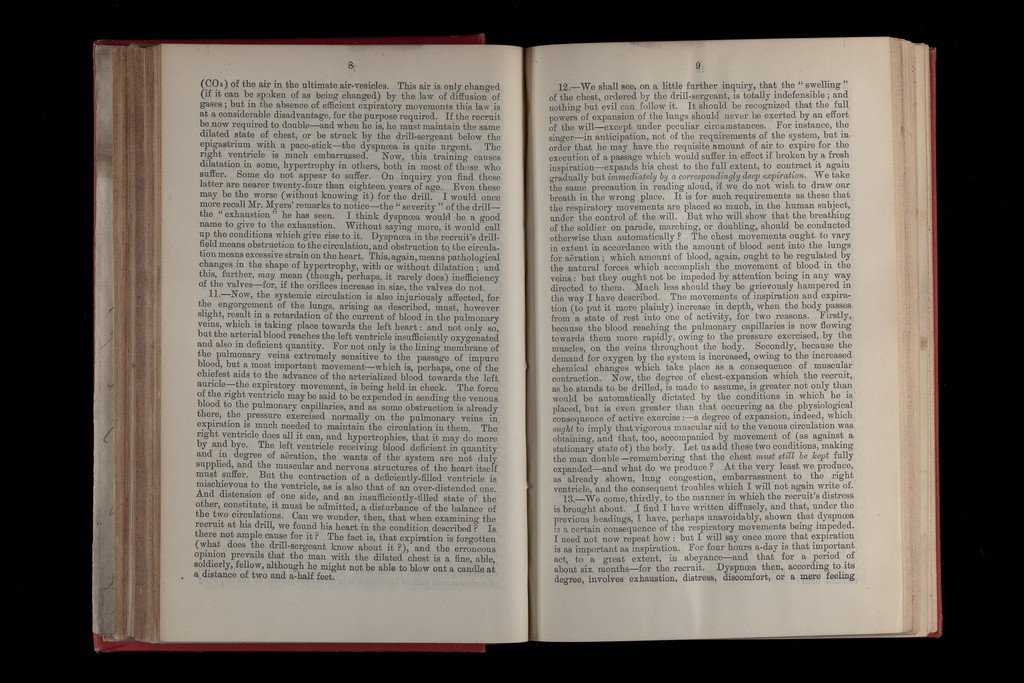 8
(CO₂) of the air in the ultimate air-vesicles. This air is only changed
(if it can be spoken of as being changed) by the law of diffusion of
gases; but in the absence of efficient expiratory movements this law is
at a considerable disadvantage, for the purpose required. If the recruit
be now required to double—and when he is, he must maintain the same
dilated state of chest, or be struck by the drill-sergeant below the
epigastrium with a pace-stick—the dyspnœa is quite urgent. The
right ventricle is much embarrassed. Now, this training causes
dilatation in some, hypertrophy in others, both in most of those who
suffer. Some do not appear to suffer. On inquiry you find these
latter are nearer twenty-four than eighteen years of age. Even these
may be the worse (without knowing it) for the drill. I would once
more recall Mr. Myers' remarks to notice—the "severity" of the drill—
the "exhaustion" he has seen. I think dyspnœa would be a good
name to give to the exhaustion. Without saying more, it would call
up the conditions which give rise to it. Dyspnœa in the recruit's drill-
field means obstruction to the circulation, and obstruction to the circula-
tion means excessive strain on the heart. This, again, means pathological
changes in the shape of hypertrophy, with or without dilatation; and
this, further, may mean (though, perhaps, it rarely does) inefficiency
of the valves—for, if the orifices increase in size, the valves do not.
11.—Now, the systemic circulation is also injuriously affected, for
the engorgement of the lungs, arising as described, must, however
slight, result in a retardation of the current of blood in the pulmonary
veins, which is taking place towards the left heart: and not only so,
but the arterial blood reaches the left ventricle insufficiently oxygenated
and also in deficient quantity. For not only is the lining membrane of
the pulmonary veins extremely sensitive to the passage of impure
blood, but a most important movement—which is, perhaps, one of the
chiefest aids to the advance of the arterialized blood towards the left
auricle—the expiratory movement, is being held in check. The force
of the right ventricle may be said to be expended in sending the venous
blood to the pulmonary capillaries, and as some obstruction is already
there, the pressure exercised normally on the pulmonary veins in
expiration is much needed to maintain the circulation in them. The
right ventricle does all it can, and hypertrophies, that it may do more
by and bye. The left ventricle receiving blood deficient in quantity
and in degree of aëration, the wants of the system are not duly
supplied, and the muscular and nervous structures of the heart itself
must suffer. But the contraction of a deficiently-filled ventricle is
mischievous to the ventricle, as is also that of an over-distended one.
And distension of one side, and an insufficiently-filled state of the
other, constitute, it must be admitted, a disturbance of the balance of
the two circulations. Can we wonder, then, that when examining the
recruit at his drill, we found his heart in the condition described? Is
there not ample cause for it? The fact is, that expiration is forgotten
(what does the drill-sergeant know about it?), and the erroneous
opinion prevails that the man with the dilated chest is a fine, able,
soldierly, fellow, although he might not be able to blow out a candle at
a distance of two and a-half feet.
9
12.—We shall see, on a little further inquiry, that the "swelling"
of the chest, ordered by the drill-sergeant, is totally indefensible; and
nothing but evil can follow it. It should be recognized that the full
powers of expansion of the lungs should never be exerted by an effort
of the will—except under peculiar circumstances. For instance, the
singer—in anticipation, not of the requirements of the system, but in
order that he may have the requisite amount of air to expire for the
execution of a passage which would suffer in effect if broken by a fresh
inspiration—expands his chest to the full extent, to contract it again
gradually but immediately by a correspondingly deep expiration. We take
the same precaution in reading aloud, if we do not wish to draw our
breath in the wrong place. It is for such requirements as these that
the respiratory movements are placed so much, in the human subject,
under the control of the will. But who will show that the breathing
of the soldier on parade, marching, or doubling, should be conducted
otherwise than automatically? The chest movements ought to vary
in extent in accordance with the amount of blood sent into the lungs
for aëration; which amount of blood, again, ought to be regulated by
the natural forces which accomplish the movement of blood in the
veins: but they ought not be impeded by attention being in any way
directed to them. Much less should they be grievously hampered in
the way I have described. The movements of inspiration and expira-
tion (to put it more plainly) increase in depth, when the body passes
from a state of rest into one of activity, for two reasons. Firstly,
because the blood reaching the pulmonary capillaries is now flowing
towards them more rapidly, owing to the pressure exercised, by the
muscles, on the veins throughout the body. Secondly, because the
demand for oxygen by the system is increased, owing to the increased
chemical changes which take place as a consequence of muscular
contraction. Now, the degree of chest-expansion which the recruit,
as he stands to be drilled, is made to assume, is greater not only than
would be automatically dictated by the conditions in which he is
placed, but is even greater than that occurring as the physiological
consequence of active exercise:—a degree of expansion, indeed, which
ought to imply that vigorous muscular aid to the venous circulation was
obtaining, and that, too, accompanied by movement of (as against a
stationary state of) the body. Let us add these two conditions, making
the man double—remembering that the chest must still be kept fully
expanded—and what do we produce? At the very least we produce,
as already shown, lung congestion, embarrassment to the right
ventricle, and the consequent troubles which I will not again write of.
13.—We come, thirdly, to the manner in which the recruit's distress
is brought about. I find I have written diffusely, and that, under the
previous headings, I have, perhaps unavoidably, shown that dyspnœa
is a certain consequence of the respiratory movements being impeded.
I need not now repeat how: but I will say once more that expiration
is as important as inspiration. For four hours a-day is that important
act, to a great extent, in abeyance—and that for a period of
about six months—for the recruit. Dyspnœa then, according to its
degree, involves exhaustion, distress, discomfort, or a mere feeling